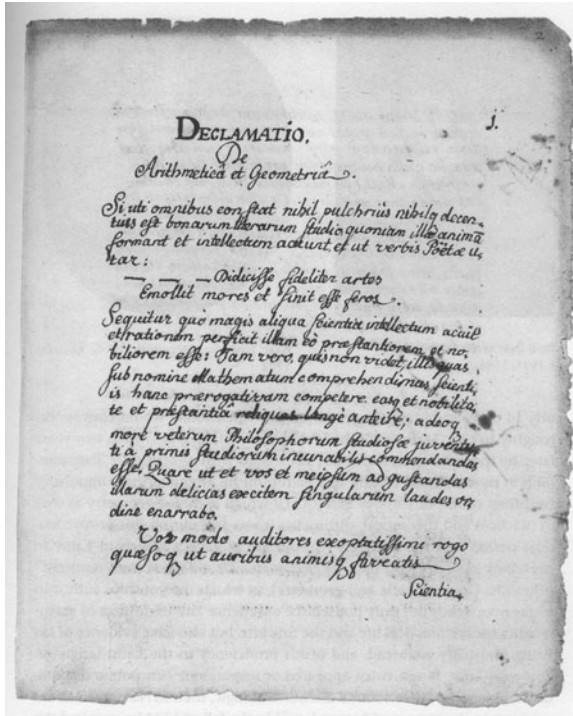 1.
DECLAMATIO.
De
Arithmeticâ et Geometriâ.
Si, uti omnibus constat nihil pulchrius nihilq decen-
tius est bonarum literarum studio, quoniam illæ animā
formant et intellectum acuunt, et ut verbis Poëtæ u-
tar:
— — — Didicisse fideliter artes
Emollit mores et sinit esse feros.
Sequitur quò magis aliqua scientia intellectum acuit
et rationem perficit illam eò præstantiorem et no-
biliorem esse: Jam vero, quis non videt, illis quas
sub nomine Mathematum comprehendimus scienti-
is hanc prærogativam competere, easq et nobilita-
te et præstantiâ reliquas longè anteire, adeoq
more veterum Philosophorum studiosæ juventu-
ti à primis studiorum incunabilis commendandas
esse. Quare ut et vos et meipsum ad gustandas
illarum delicias excitem singularum laudes or-
dine enarrabo.
Vos modo auditores exoptatissimi rogo
quæsoq ut auribus animisq faveatis
Scientia,